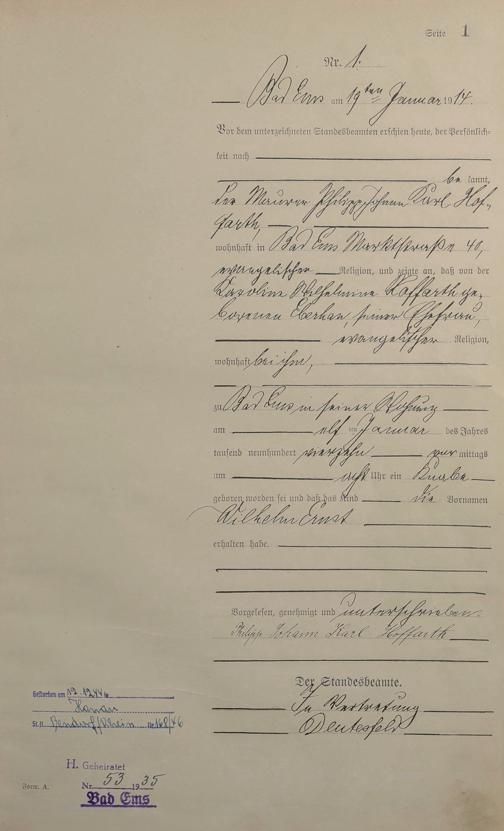 Seite 1
Nr. 1.
Bad Ems am 19ten Januar 1914.
Vor dem unterzeichneten Standesbeamten erschien heute, der Persönlich-
keit nach
be kannt,
der Maurer Philipp Johann Karl Hof-
farth,
wohnhaft in Bad Ems Marktstraße 40,
evangelischer Religion, und zeigte an, daß von der
Karoline Wilhelmine Hoffarth ge-
borenen, seiner Ehefrau,
evangelischer Religion,
wohnhaft bei ihm,
zu Bad Ems in seiner Wohnung
am elf ten Januar des Jahres
tausend neunhundert vierzehn vor mittags
um acht Uhr ein Knabe
geboren worden sei und daß das Kind die Vornamen
Wilhelm Ernst
erhalten habe.
Vorgelesen, genehmigt und unterschrieben.
Philipp Johann Karl Hoffarth
Der Standesbeamte.
In Vertretung
Gestorben am
St.A. Bendorf/Rhein
H. Geheiratet
Nr. 53 1935
Bad Ems
Form. A.